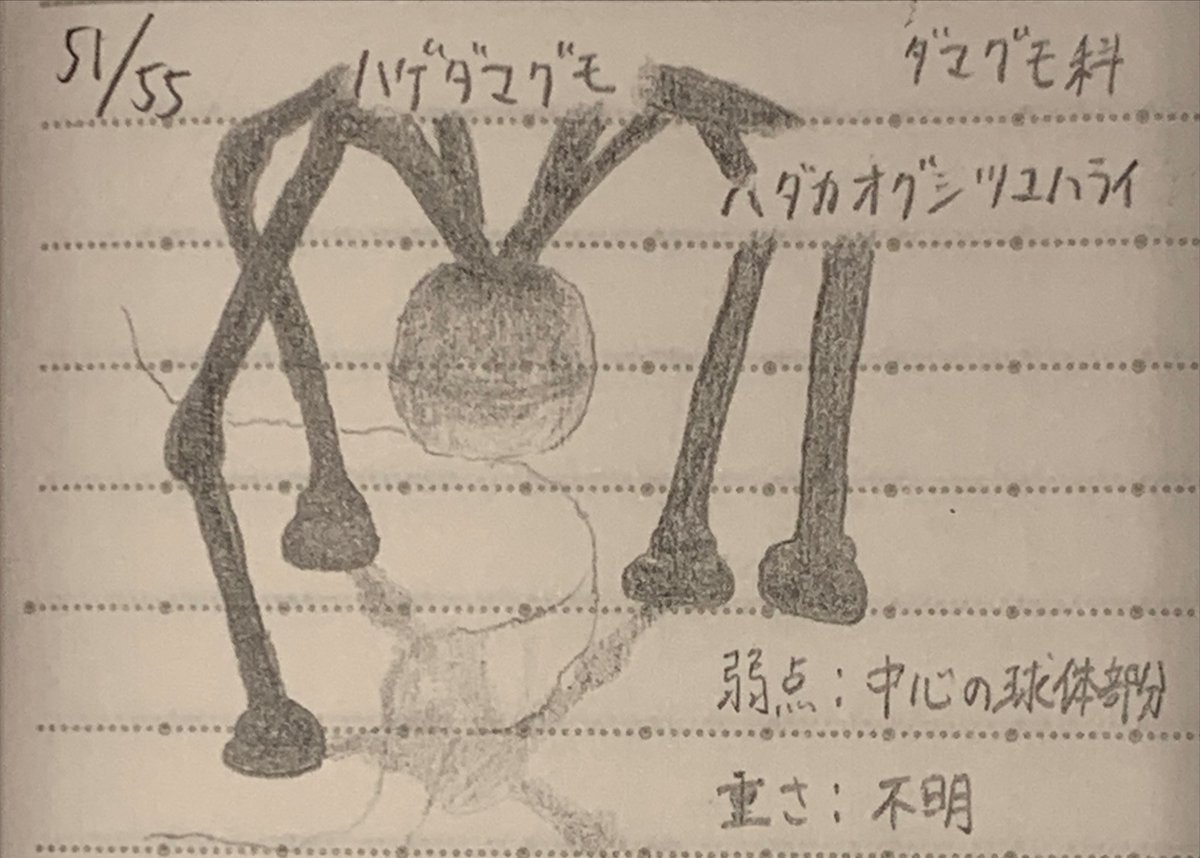 51/55
ハゲダマグモ
ダマグモ科
ハダカオグシツユハライ
弱点：中心の球体部分
重さ：不明